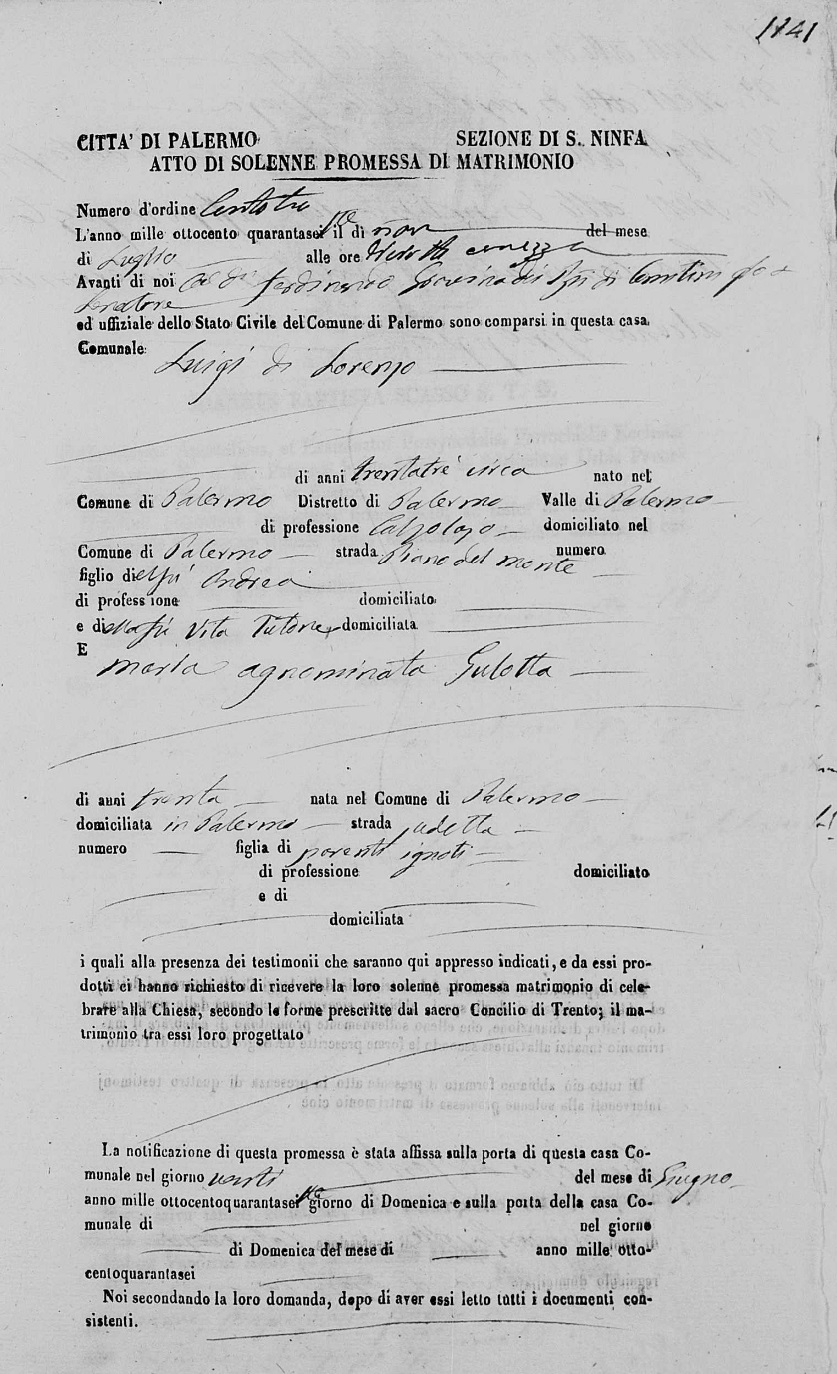 CITTA' DI PALERMO SEZIONE DI S. NINFA
ATTO DI SOLENNE PROMESSA DI MATRIMONIO
Numero d'ordine Centotre
L'anno mille ottocento quarantasei il dì del mese
di Luglio alle ore
Avanti di noi Ferdinando di
Senatore
ed uffiziale dello Stato Civile del Comune di Palermo sono comparsi in questa casa
Comunale
Luigi di Lorenzo
di anni trentatrè circa nato nel
Comune di Palermo Distretto di Palermo Valle di Palermo
di professione Calzolajo domiciliato nel
Comune di Palermo strada Piano del monte numero
figlio di Andrea
di professione domiciliato
e di Vita Tutone domiciliata
E
Maria agnominata Gulotta
di anni trenta nata nel Comune di Palermo
domiciliata in Palermo strada
numero figlia di parenti ignoti
di professione domiciliato
e di
domiciliata
i quali alla presenza dei testimonii che saranno qui appresso indicati, e da essi pro-
dotti ci hanno richiesto di ricevere la loro solenne promessa matrimonio di cele-
brare alla Chiesa, secondo le forme prescritte dal sacro Concilio di Trento; il ma-
trimonio tra essi loro progettato
La notificazione di questa promessa è stata affissa sulla porta di questa casa Co-
munale nel giorno venti del mese di Giugno
anno mille ottocentoquarantasei giorno di Domenica e sulla porta della casa Co-
munale di nel giorno
di Domenica del mese di anno mille otto-
centoquarantasei
Noi secondando la loro domanda, dopo di aver essi letto tutti i documenti con-
sistenti.